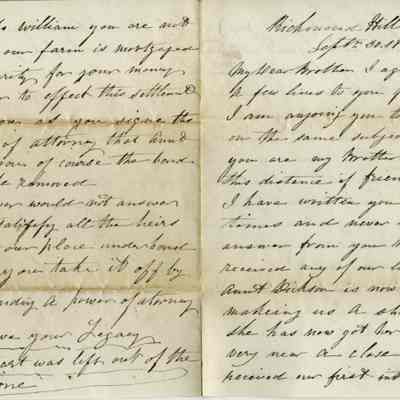 William you are not
our farm is mortgaged
for your money
to effect this settlement
as you signe the
of attorney that Aunt
of course the bond
removed
would not answer
all the heirs
our place under bond
you take it off by
a power of attorney
your Legacy
was left out of the
one
Richmond Hill
Sept
My Dear Brother I ag
A few lines to you
I am anjoying you
on the same subjec
you are my Brother
this distance of frien
I have written you
times and never
answer from you
received any of our l
Aunt Dickson is now
making us a sh
she has now got her
very near a close
received our first in